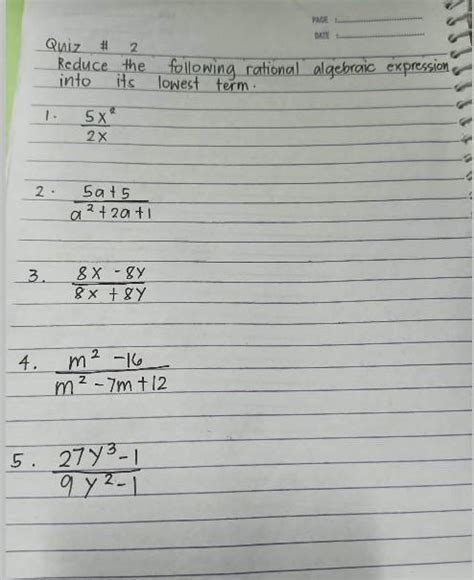 PAGE :
DATE :
Quiz # 2
Reduce the following rational algebraic expression
into its lowest term.
1. 5x²
2x
2. 5a+5
a²+2a+1
3. 8x - 8y
8x + 8y
4. m² -16
m² -7m+12
5. 27y³-1
9y²-1